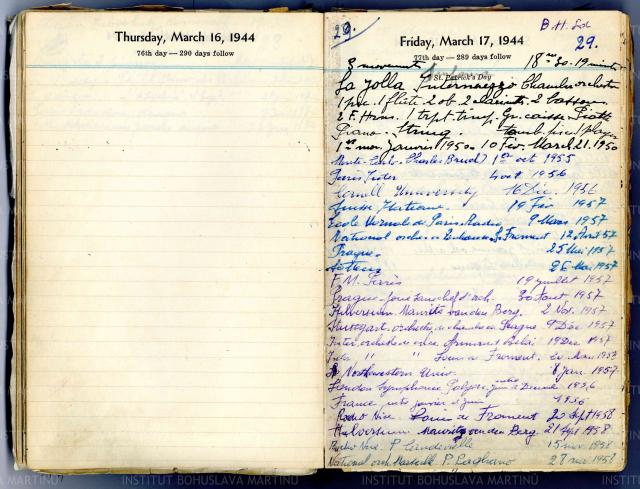 Thursday, March 16, 1944
76th day — 290 days follow
29.
B.H. Ld
Friday, March 17, 1944
29.
77th day — 289 days follow
St. Patrick's Day
3 movements
La Jolla Intermezzo Chamber orchestra
1 picc. 1 flute 2 ob. 2 clarinets 2 bassons
2 F. Horns 1 trpt. timp. Gr. caisse Piatti
Piano. String.
Janvier 1950 10 Fév. March 21. 1950
Monte-Carlo. Charles Bruck) 1er oct 1955
Paris Inter 4 oct 1956
Cornell University 16 Dec. 1956
Suisse Italiane. 19 Fév 1957
Ecole Normale de Paris. Radio 9 Mars 1957
National orches. Froment 12 Avril 57
Prague. 25 Mai 1957
25 Mai 1957
F. M. Paris 19 juillet 1957
Prague - 30 Aout 1957
Hilversum. Maurits van den Berg. 2 Nov. 1957
Stuttgart. orchestre de chambre de Prague 9 Déc 1957
Inter. orchestre Armand Belai 19 Dec 1957
Inter " " Louis de Froment. 20 1957
Northwestern Univ. 8 Jan. 1957
London Symphonie 1956
France janvier 1956
Radio Nice Louis de Froment 20 Sept 1958
Hilversum Maurits van den Berg. 21 Sept 1958
Radio Nice. P. 15 nov. 1958
National orch. Marseille P. Pagliano 27 nov. 1958
INSTITUT BOHUSLAVA MARTINŮ INSTITUT BOHUSLAVA MARTINŮ